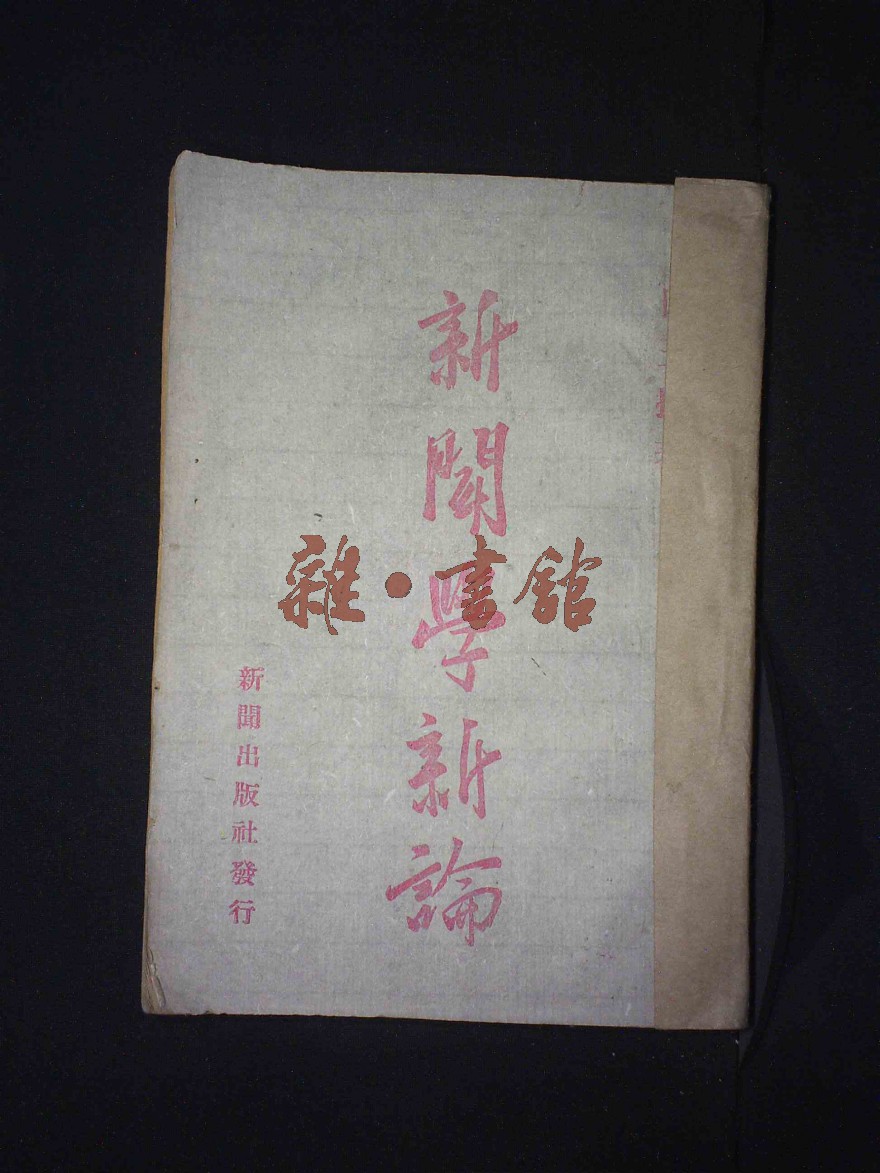 新聞學新論
新聞出版社發行
雜·書館